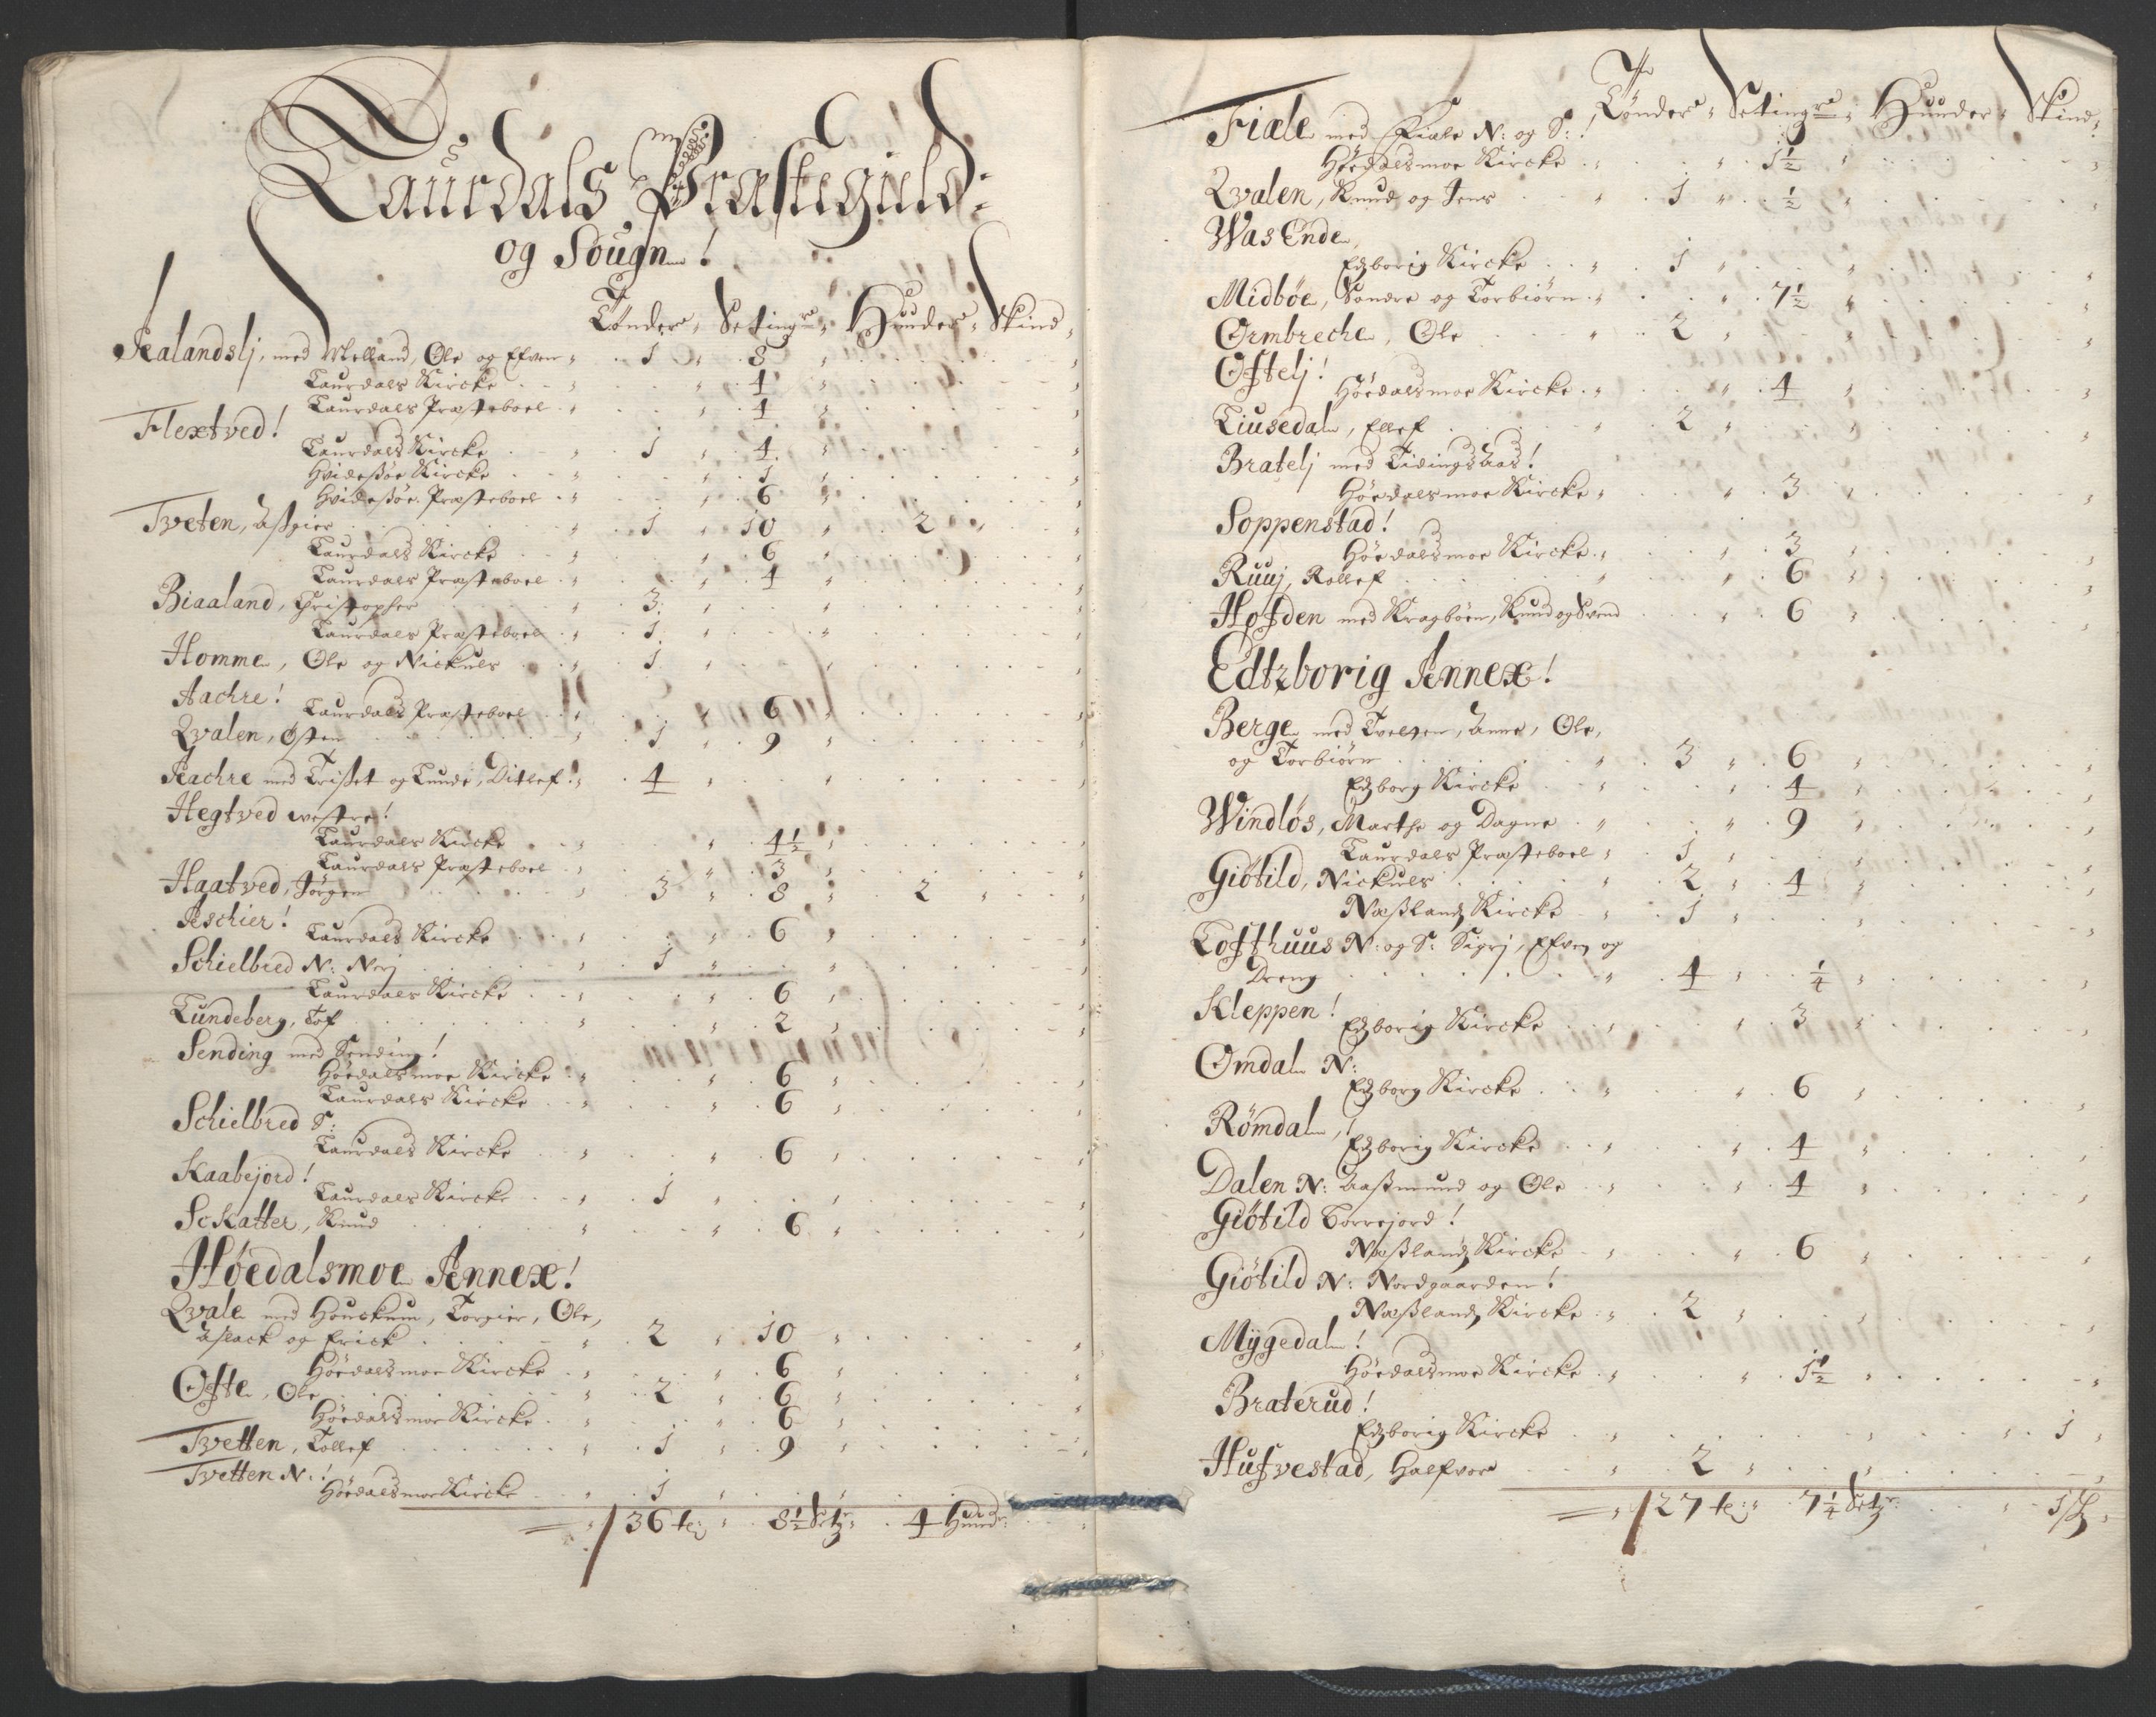 Laurdals Præstegield:
og Sougn!
Tønder, Setingr, Huuder, Skind,
Aalandslj, med Melland, Ole og Efven 1 8
Laurdals Kircke 4
Laurdals Præsteboel 4
Flextved!
Laurdals Kircke 1 4
Hvidessøe Kircke 1
Hvidessøe Præsteboel 6
Tveten, Assgier 1 10 2
Laurdals Kircke 6
Laurdals Præsteboel 4
Biaaland, Christopher 3
Laurdals Præsteboel 1
Homme, Ole og Nickuls 1
Aachre!
Laurdals Præsteboel 6
Qvalen, Østen 1 9
Aachre med Trisset og Lunde, Ditlef 4
Hegtved westre!
Laurdals Kircke 4½
Laurdals Præsteboel 3
Haatved, Jørgen 3 8 2
Aschier!
Laurdals Kircke 6
Schielbred N: Nerj 1
Laurdals Kircke 6
Lundeberg, Tof 2
Sending med Sending!
Høedalsmoe Kircke 6
Laurdals Kircke 6
Schielbred S:
Laurdals Kircke 6
Kaabejord!
Laurdals Kircke 1
Sckatter, Knud 6
Høedalsmoe Annex!
Qvale med Houckum, Torgier, Ole,
Aslack og Erick 2 10
Høedalsmoe Kircke 6
Ofte, Ole 2 6
Høedalsmoe Kircke 6
Tvetten, Tollef 1 9
Tvetten N:!
Høedalsmoe Kircke 1
36 te: 8½ Setzr: 4 Huudr:
Tønder, Setingr, Huuder, Skind,
Fiale med Fiale N: og S:
Høedalsmoe Kircke 1½
Qvalen, Knud og Jens 1 ½
Was Ende,
Edzborig Kircke 1
Midbøe, Sondre og Torbiørn 7½
Ormbreche, Ole 2
Oftelj!
Høedalsmoe Kircke 4
Liusedal, Ellef 2
Bratelj med Tidings Aas!
Høedalsmoe Kircke 3
Soppenstad!
Høedalsmoe Kircke 3
Ruuj, Rollef 6
Hofden med Kragbøen, Knud og Svend 6
Edtzborig Annex!
Berge med Tvelten, Anne, Ole,
og Torbiørn 3 6
Edzborg Kircke 4
Windløs, Marthe og Dagne 9
Laurdals Præsteboel 1
Giøtild, Nickuls 2 4
Næsslandz Kircke 1
Lofthuus N: og S: Sigrj, Efven og
Dreng 4 ¼
Kleppen!
Edzborig Kircke 3
Omdal N:
Edzborg Kircke 6
Rømdal,!
Edzborig Kircke 4
Dalen N: Aassmund og Ole 4
Giøtild Torrejord!
Næsslandz Kircke 6
Giøtild N: Nordgaarden!
Næsslandz Kircke 2
Mygedal!
Høedalsmoe Kircke 1½
Braterud!
Edzborig Kircke 1
Hufvestad, Halfvor 2
27 te: 7¼ Setzr: 1 sk: